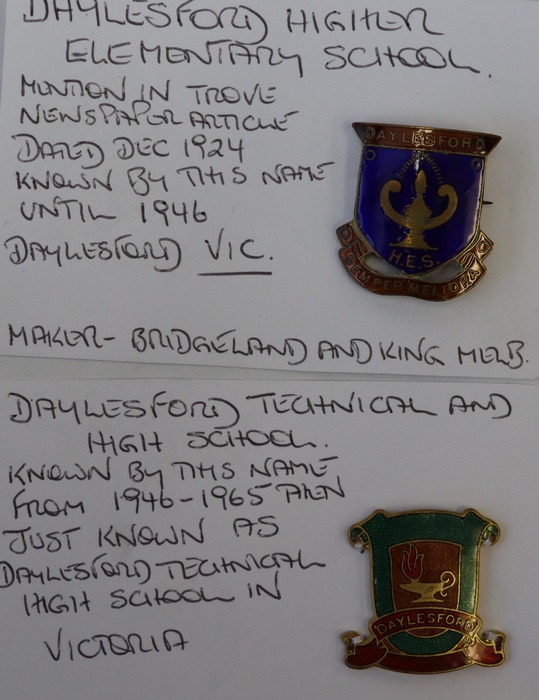 DAYLESFORD HIGHER
ELEMENTARY SCHOOL.
MENTION IN TROVE
NEWSPAPER ARTICLE
DATED DEC 1924
KNOWN BY THIS NAME
UNTIL 1946
DAYLESFORD VIC.
DAYLESFORD
H.E.S.
SEMPER MELIORA
MAKER- BRIDGELAND AND KING MELB.
DAYLESFORD TECHNICAL AND
HIGH SCHOOL.
KNOWN BY THIS NAME
FROM 1946-1965 THEN
JUST KNOWN AS
DAYLESFORD TECHNICAL
HIGH SCHOOL IN
VICTORIA
DAYLESFORD